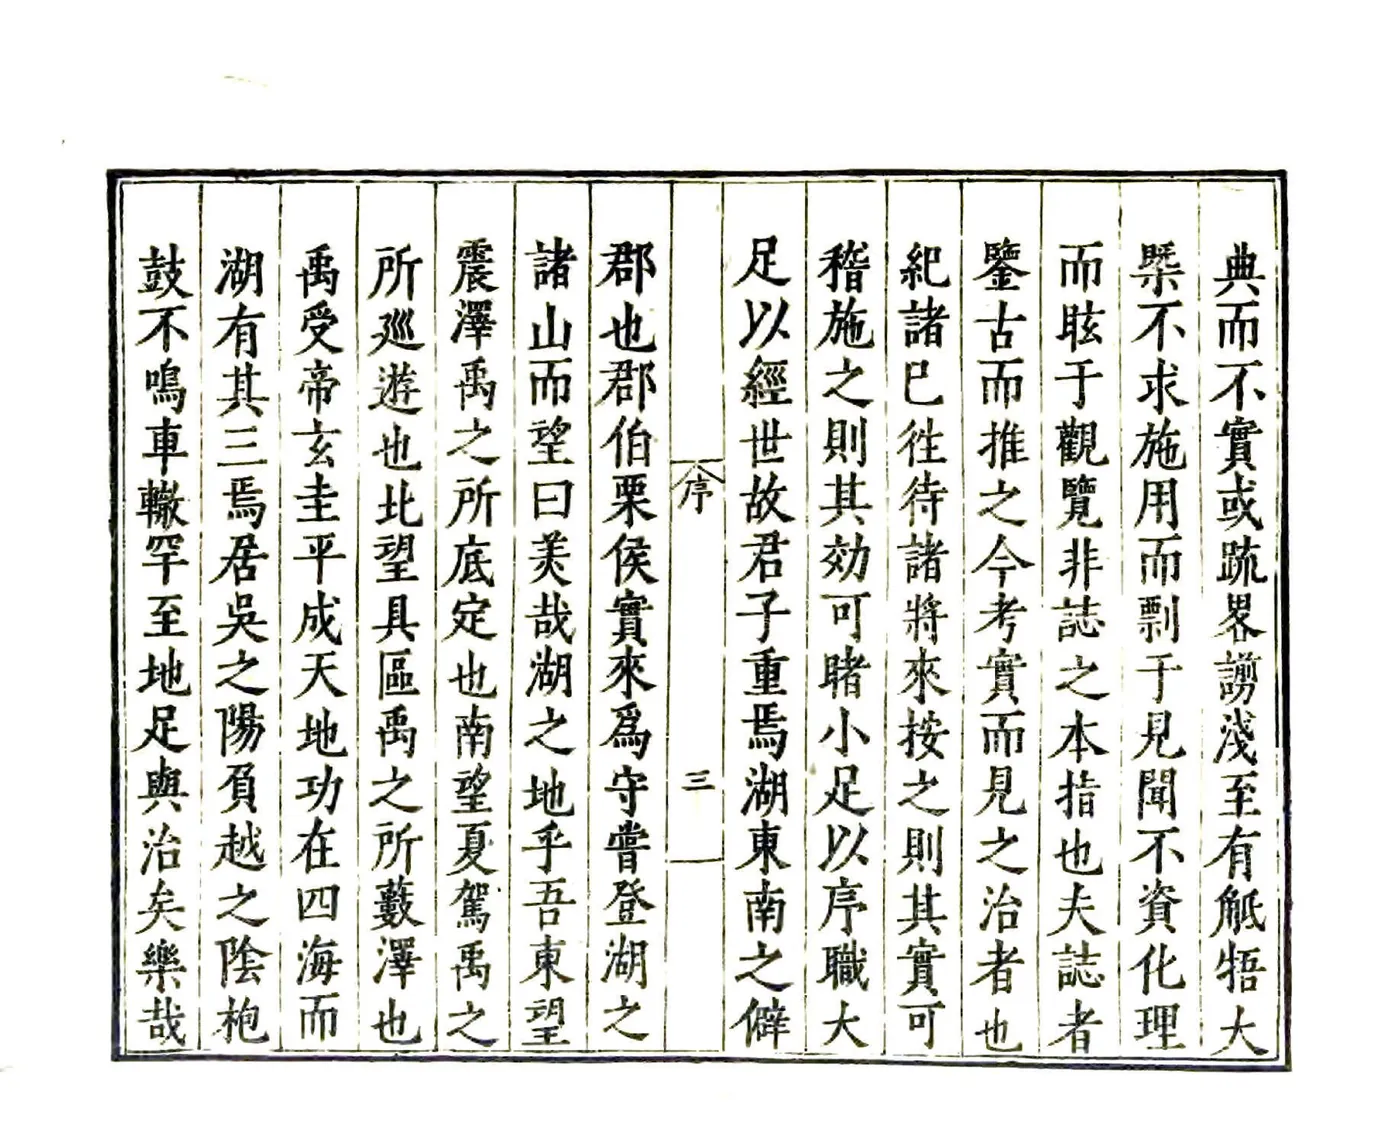 典而不實或疏畧謭淺至有觝牾大
槩不求施用而剽于見聞不資化理
而眩于觀覽非誌之本指也夫誌者
鑒古而推之今考實而見之治者也
紀諸已徃待諸將來按之則其實可
稽施之則其効可睹小足以序職大
足以經世故君子重焉湖東南之僻
序
三
郡也郡伯栗侯實來爲守嘗登湖之
諸山而望曰美哉湖之地乎吾東望
震澤禹之所底定也南望夏駕禹之
所廵遊也北望具區禹之所藪澤也
禹受帝玄圭平成天地功在四海而
湖有其三焉居吳之陽負越之陰枹
鼓不鳴車轍罕至地足與治矣樂哉